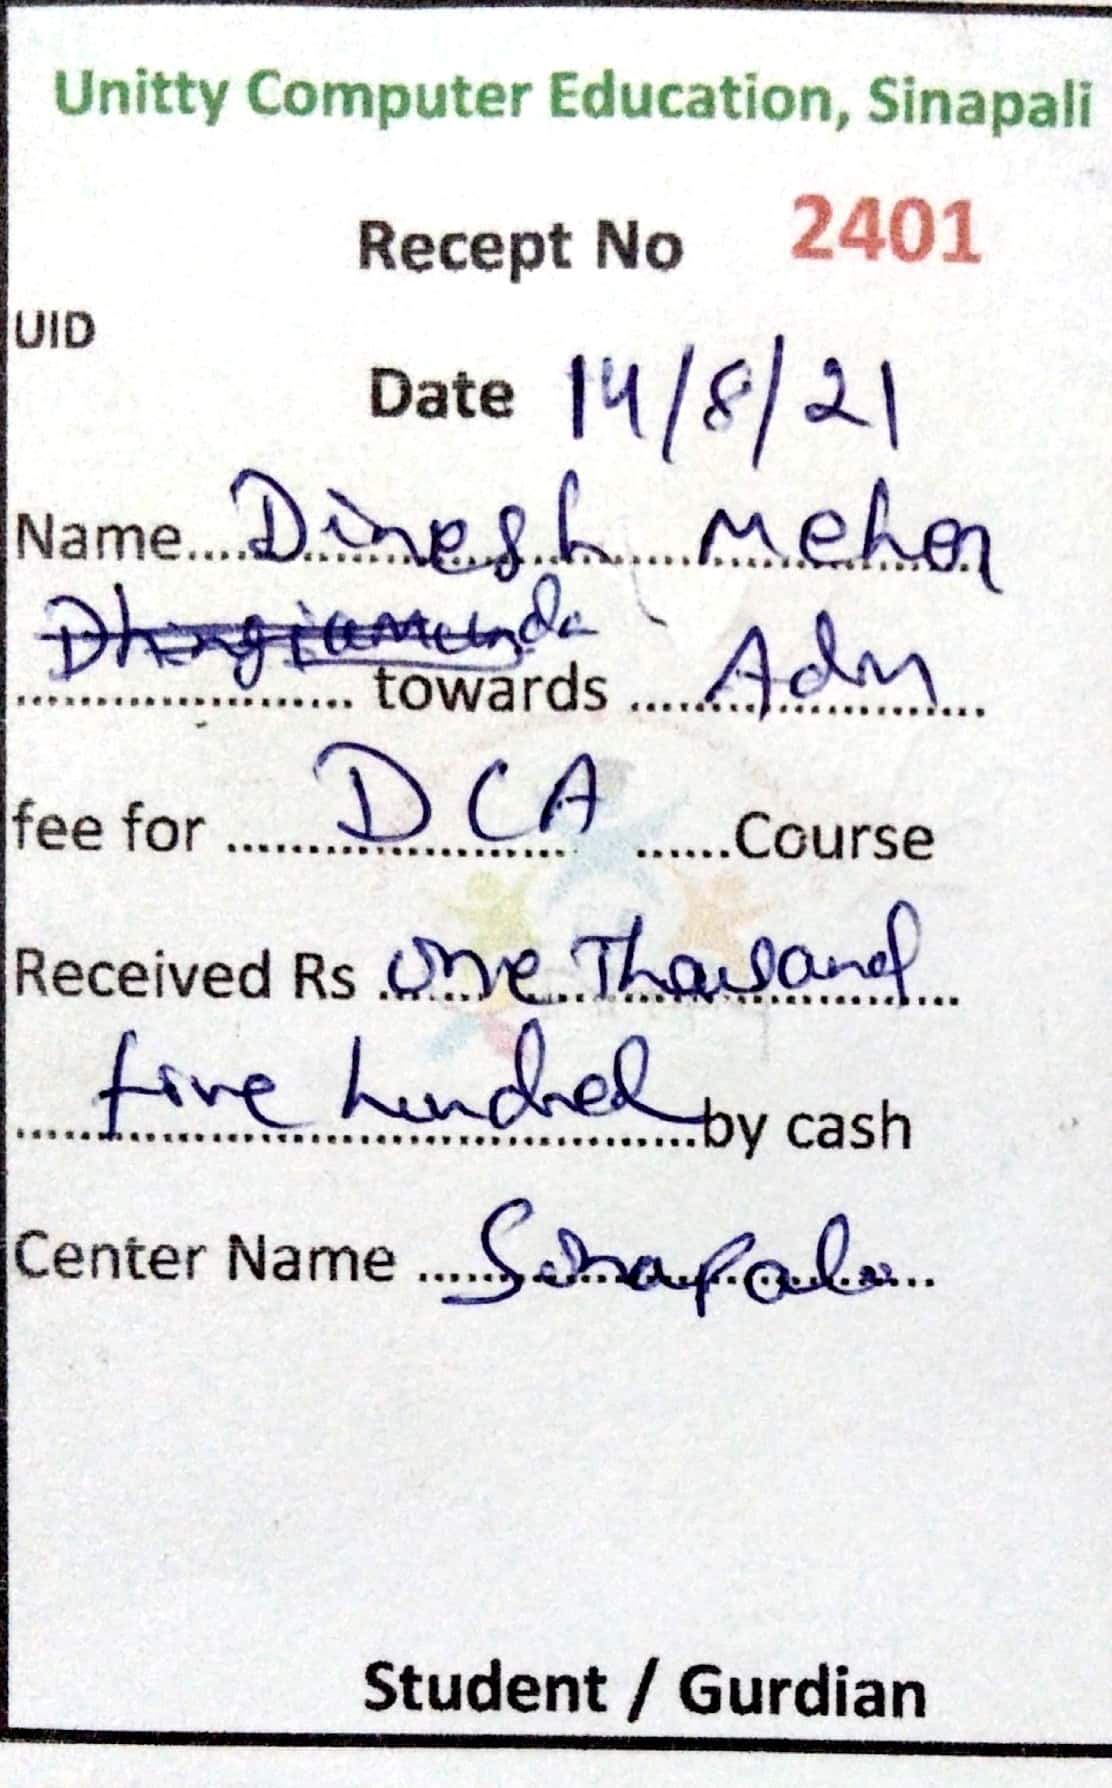 Unitty Computer Education, Sinapali
Recept No 2401
UID
Date 14/8/21
Name....Dinesh Meher
towards ....Adm
fee for ....DCA ......Course
Received Rs one Thousand
five hundred by cash
Center Name ....Sinapali
Student / Gurdian